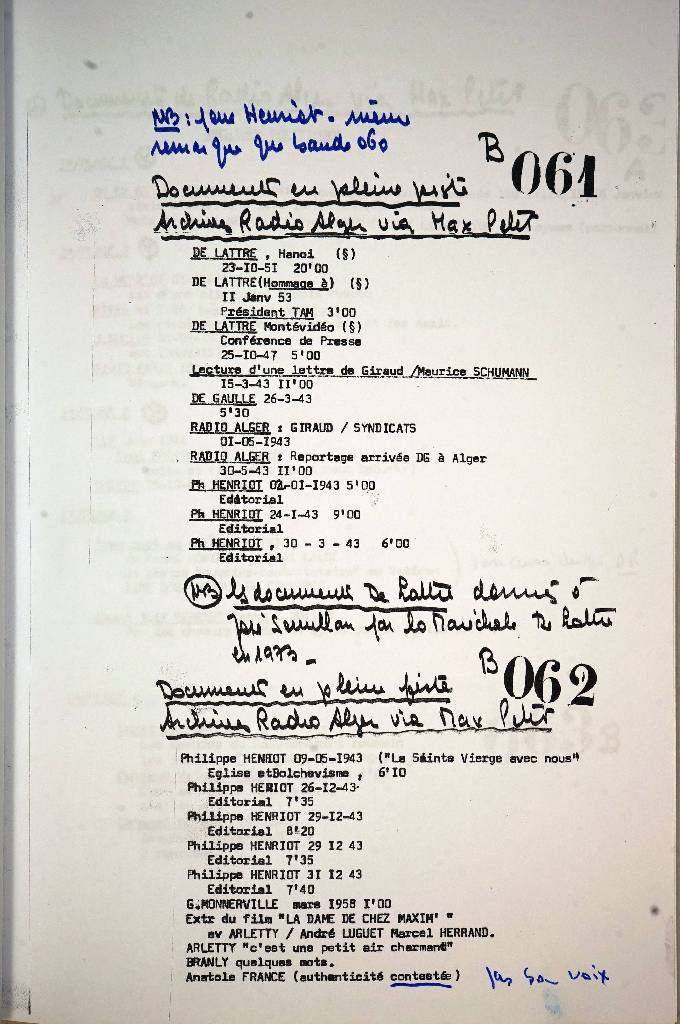 NB : pour Henriot - même
remarque que bande 060
B 061
Documents en pleine piste
Archives Radio Alger via Max Petit
DE LATTRE , Hanoi (§)
23-I0-5I 20'00
DE LATTRE(Hommage à) (§)
II Janv 53
Président TAM 3'00
DE LATTRE Montévidéo (§)
Conférence de Presse
25-I0-47 5'00
Lecture d'une lettre de Giraud /Maurice SCHUMANN
I5-3-43 II'00
DE GAULLE 26-3-43
5'30
RADIO ALGER : GIRAUD / SYNDICATS
0I-05-I943
RADIO ALGER : Reportage arrivée DG à Alger
30-5-43 II'00
Ph HENRIOT 02-0I-I943 5'00
Editorial
Ph HENRIOT 24-I-43 9'00
Editorial
Ph HENRIOT , 30 - 3 - 43 6'00
Editorial
NB les documents De Lattre donnés à
José par la Maréchale De Lattre
en 1973 _
B 062
Documents en pleine piste
Archives Radio Alger via Max Petit
Philippe HENRIOT 09-05-I943 ("La Sainte Vierge avec nous"
Eglise etBolchevisme , 6'I0
Philippe HERIOT 26-I2-43
Editorial 7'35
Philippe HENRIOT 29-I2-43
Editorial 8'20
Philippe HENRIOT 29 I2 43
Editorial 7'35
Philippe HENRIOT 3I I2 43
Editorial 7'40
G.MONNERVILLE mars I958 I'00
Extr du film "LA DAME DE CHEZ MAXIM' "
av ARLETTY / André LUGUET Marcel HERRAND.
ARLETTY "c'est une petit air charmant"
BRANLY quelques mots.
Anatole FRANCE (authenticité contestée) pas son voix